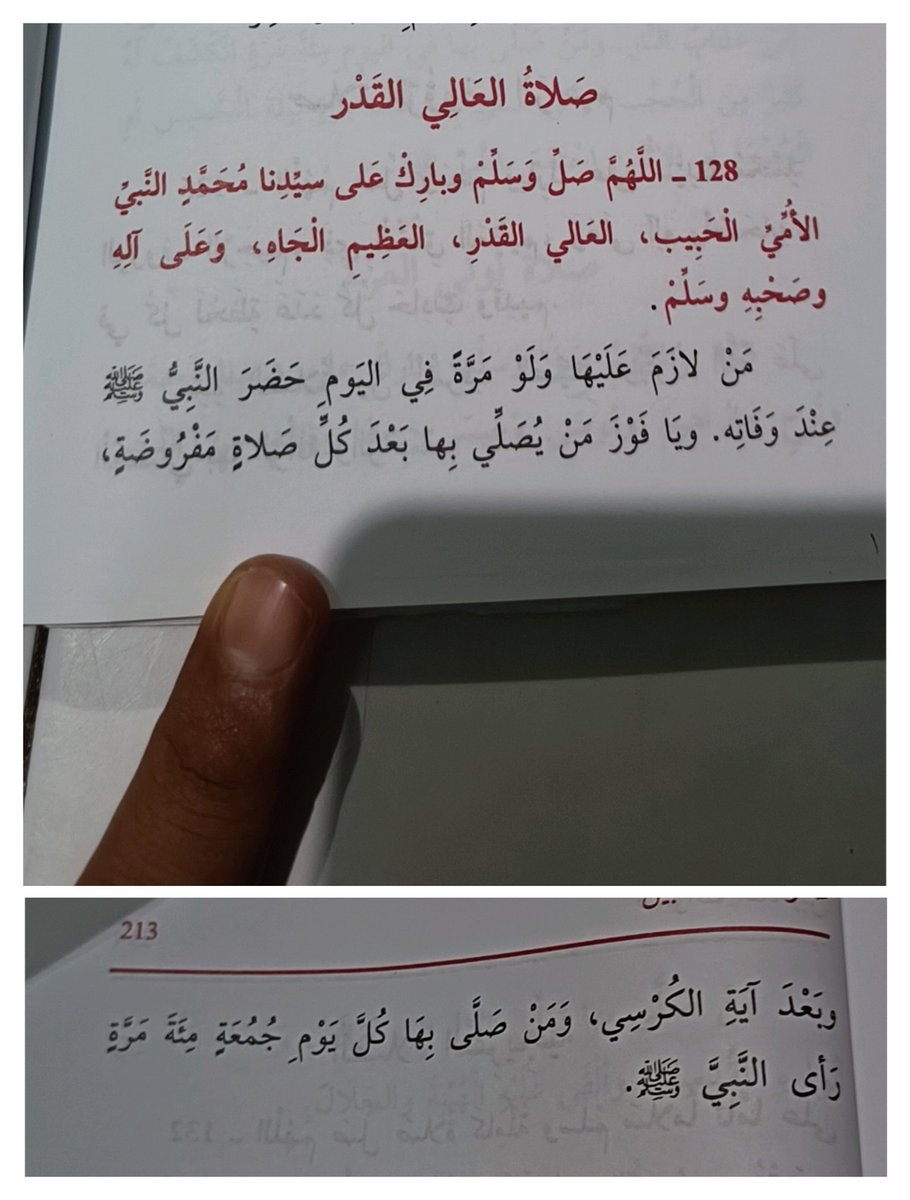 صَلاةُ العَالِي القَدْر
128 ـ اللَّهُمَّ صَلِّ وَسَلِّمْ وبارِكْ عَلى سيِّدِنا مُحَمَّدٍ النَّبيِّ
الأُمِّيِّ الْحَبِيب، العَالي القَدْرِ، العَظِيمِ الْجَاهِ، وَعَلَى آلِهِ
وصَحْبِهِ وسَلِّمْ.
مَنْ لازَمَ عَلَيْهَا وَلَوْ مَرَّةً فِي اليَومِ حَضَرَ النَّبِيُّ ﷺ
عِنْدَ وَفَاتِه. ويَا فَوْزَ مَنْ يُصَلِّي بِها بَعْدَ كُلِّ صَلاةٍ مَفْرُوضَةٍ،
213
وبَعْدَ آيَةِ الكُرْسِي، وَمَنْ صَلَّى بِهَا كُلَّ يَوْمِ جُمُعَةٍ مِئَةَ مَرَّةٍ
رَأى النَّبِيَّ ﷺ.